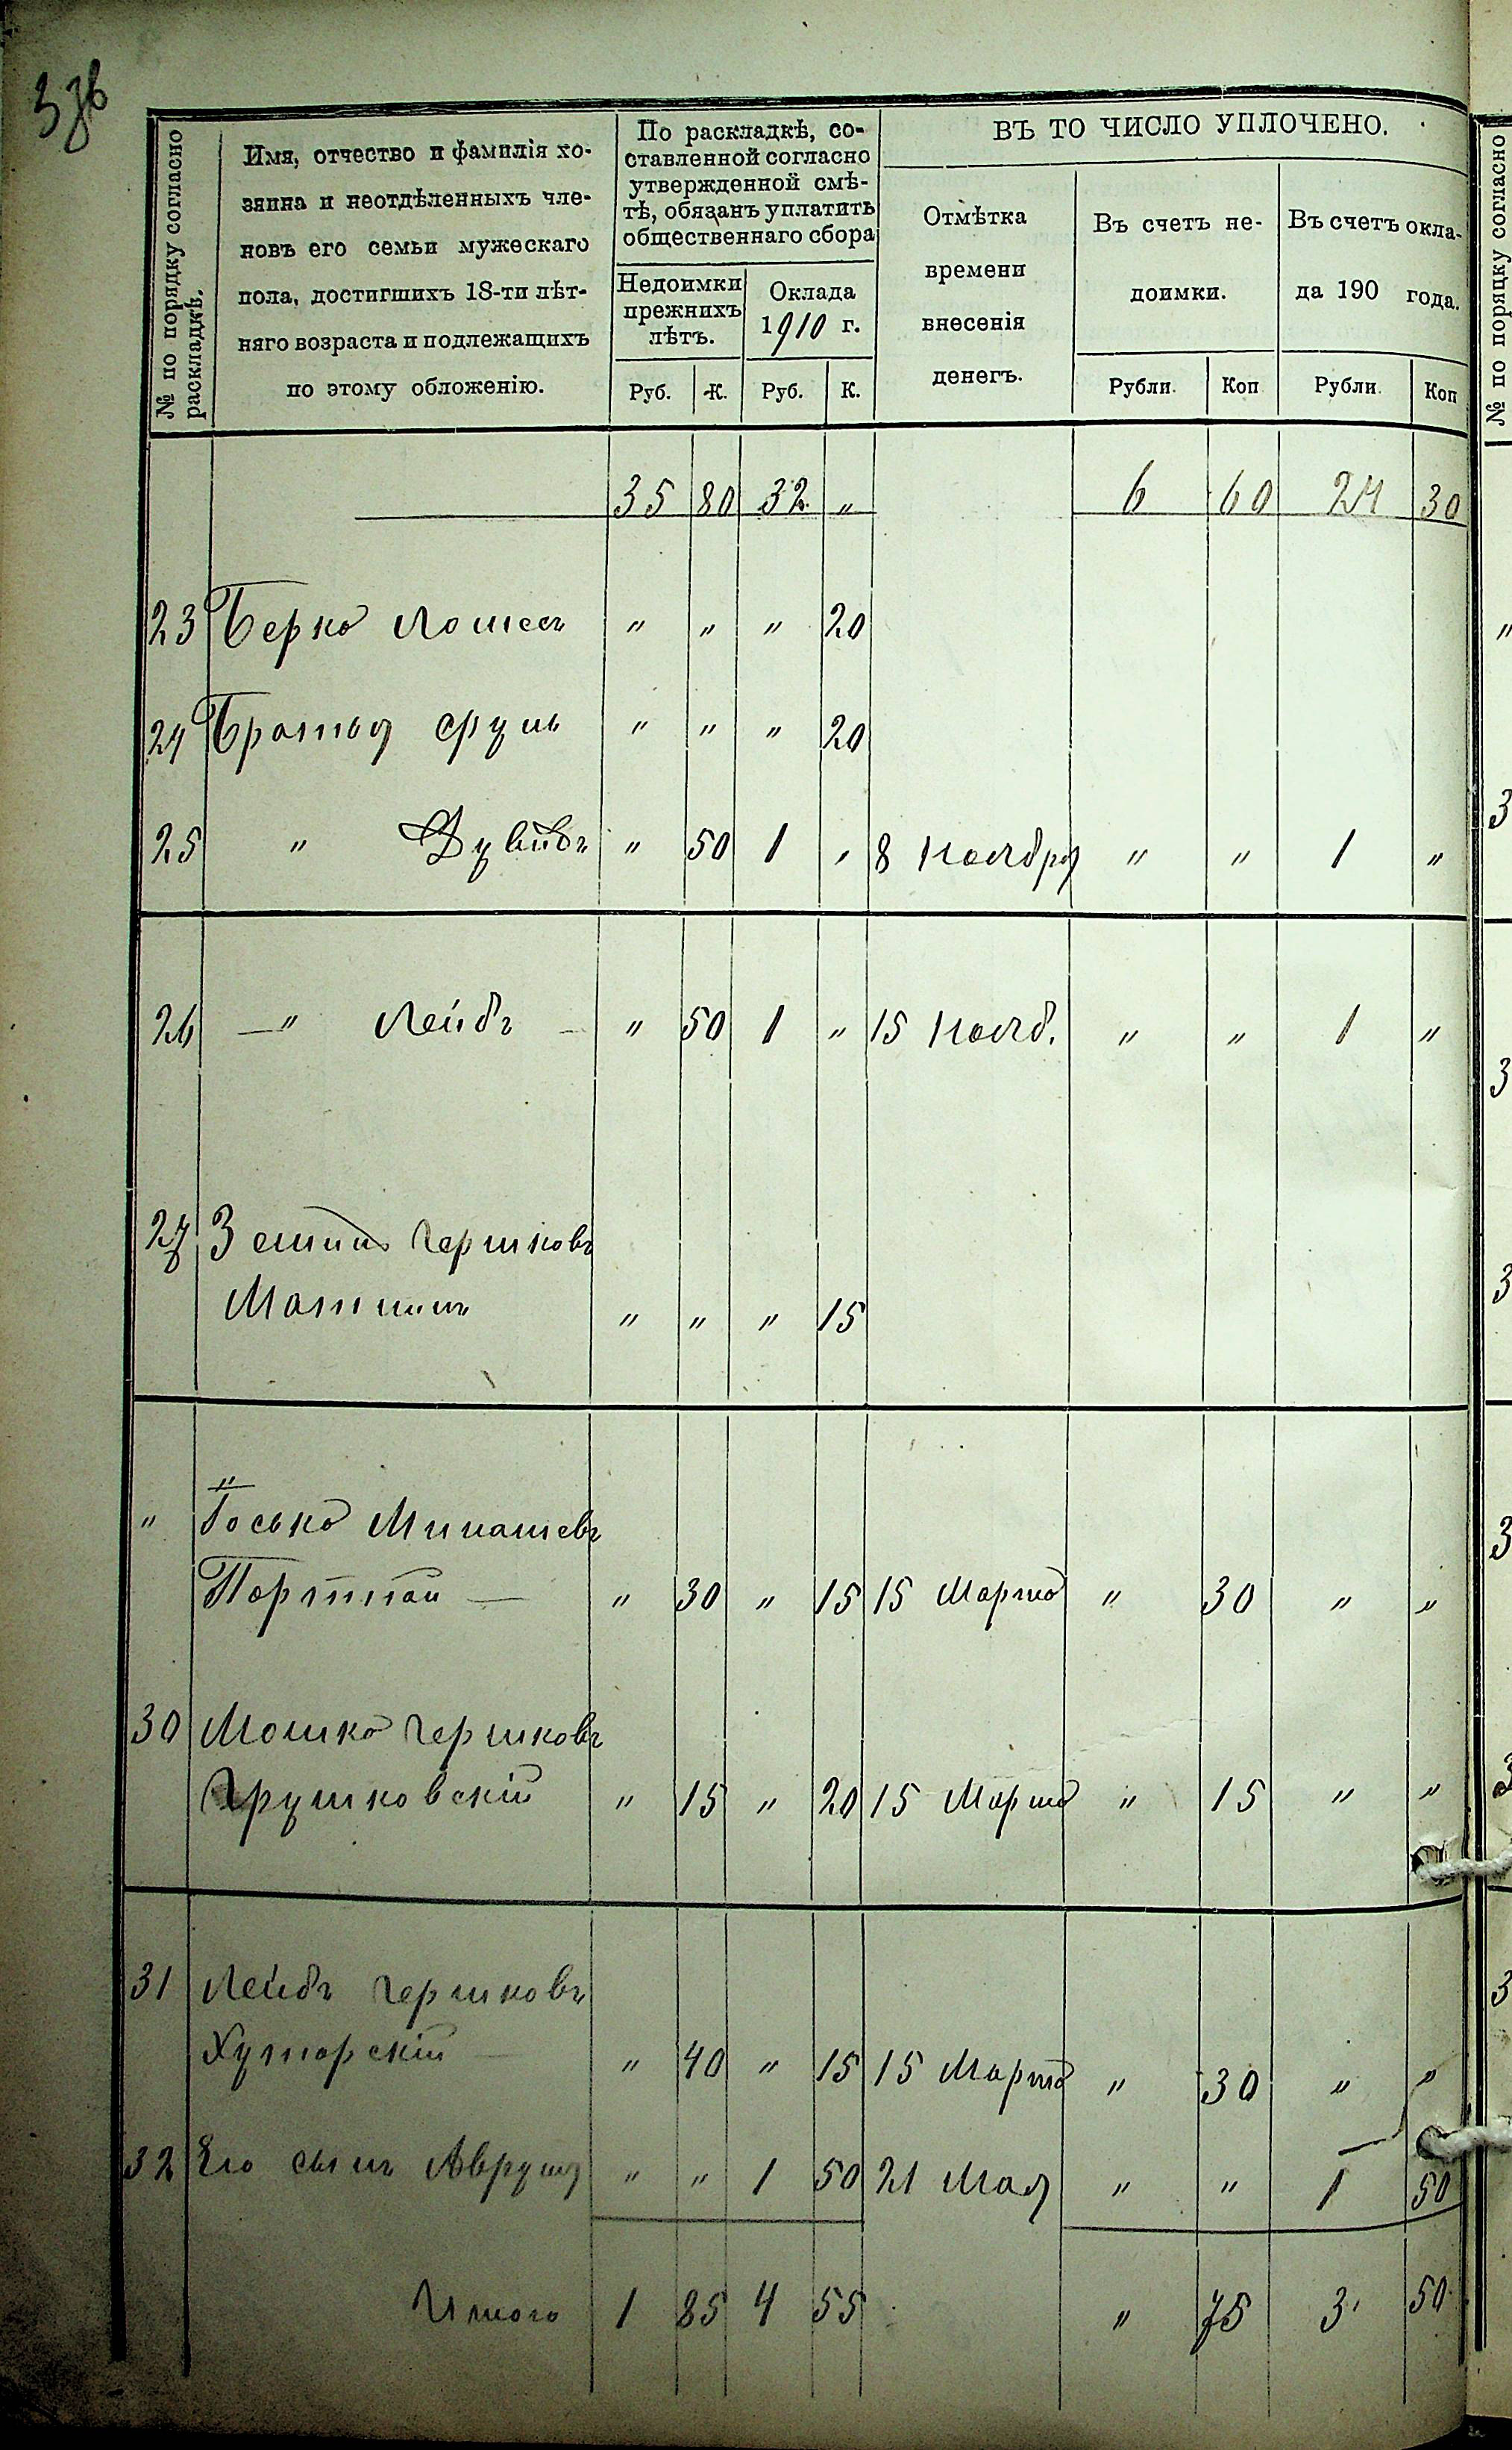 376
№ по порядку согласно раскладкѣ.
Имя, отчество и фамилія хо-
зяина и неотдѣленныхъ чле-
новъ его семьи мужескаго
пола, достигшихъ 18-ти лѣт-
няго возраста и подлежащихъ
по этому обложенію.
По раскладкѣ, со-
ставленной согласно
утвержденной смѣ-
тѣ, обязанъ уплатить
общественнаго сбора
Недоимки
прежнихъ
лѣтъ.
Оклада
1910 г.
Руб. К. Руб. К.
ВЪ ТО ЧИСЛО УПЛОЧЕНО.
Отмѣтка
времени
внесенія
денегъ.
Въ счетъ не-
доимки.
Въ счетъ окла-
да 190 года.
Рубли. Коп Рубли. Коп
35 80 32 „ 6 60 24 30
23 Берко „ „ „ 20
24 Братья Сруль „ „ „ 20
25 „ Дувидъ „ 50 1 „ 8 Ноября „ „ 1 „
26 — „ Лейбъ — „ 50 1 „ 15 Нояб. „ „ 1 „
27 Гершковъ
„ „ „ 15
„ Іосько Минашевъ
Портной — „ 30 „ 15 15 Марта „ 30 „ „
30 Мошко Гершковъ
Грушковскій „ 15 „ 20 15 Марта „ 15 „ „
31 Лейбъ Гершковъ
Хуторскій — „ 40 „ 15 15 Марта „ 30 „ „
32 Его сынъ Аврумъ „ „ 1 50 21 Мая „ „ 1 50
Итого 1 85 4 55 „ 75 3 50
№ по порядку согласно